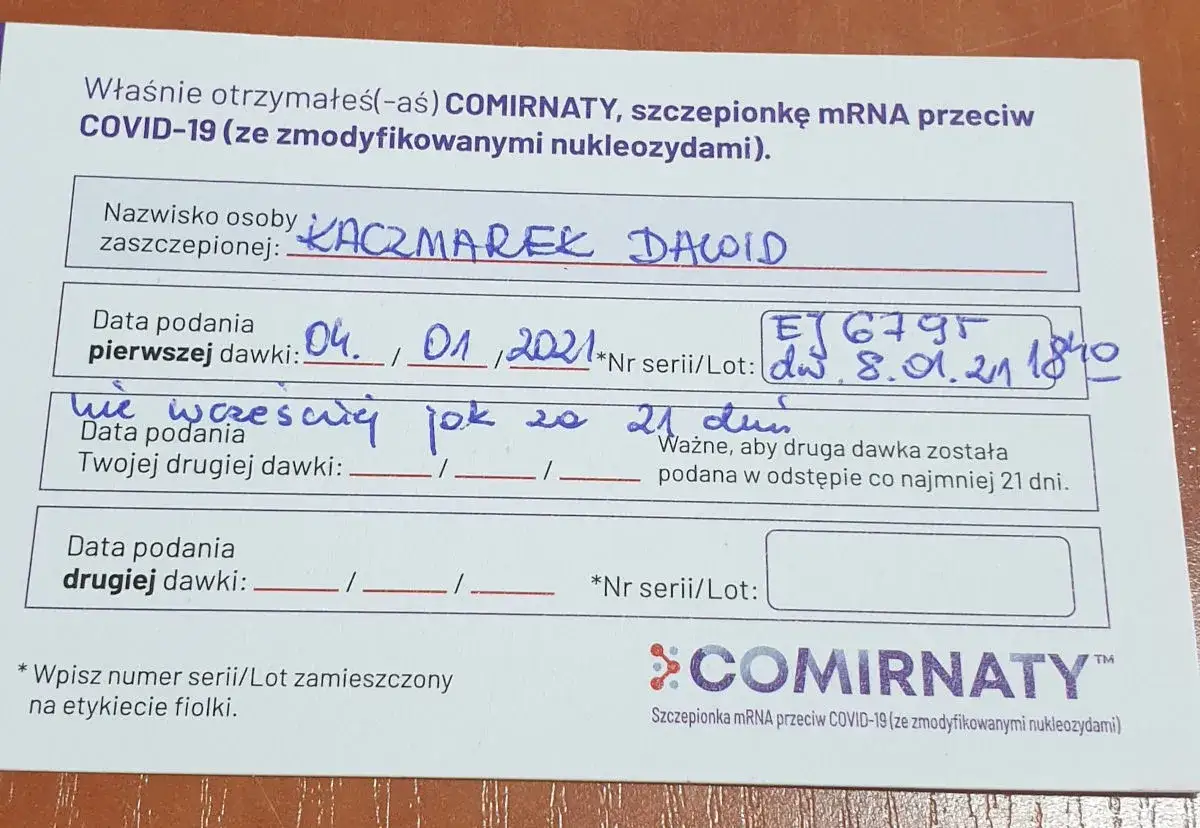 Właśnie otrzymałeś(-aś) COMIRNATY, szczepionkę mRNA przeciw
COVID-19 (ze zmodyfikowanymi nukleozydami).
Nazwisko osoby
zaszczepionej: KACZMAREK DAWID
Data podania
pierwszej dawki: 04. / 01 / 2021 *Nr serii/Lot: EJ 6795
dw. 8.01.21 18⁴⁰
nie wcześniej jak za 21 dni
Data podania
Twojej drugiej dawki: / /
Ważne, aby druga dawka została
podana w odstępie co najmniej 21 dni.
Data podania
drugiej dawki: / / *Nr serii/Lot:
* Wpisz numer serii/Lot zamieszczony
na etykiecie fiolki.
COMIRNATY™
Szczepionka mRNA przeciw COVID-19 (ze zmodyfikowanymi nukleozydami)